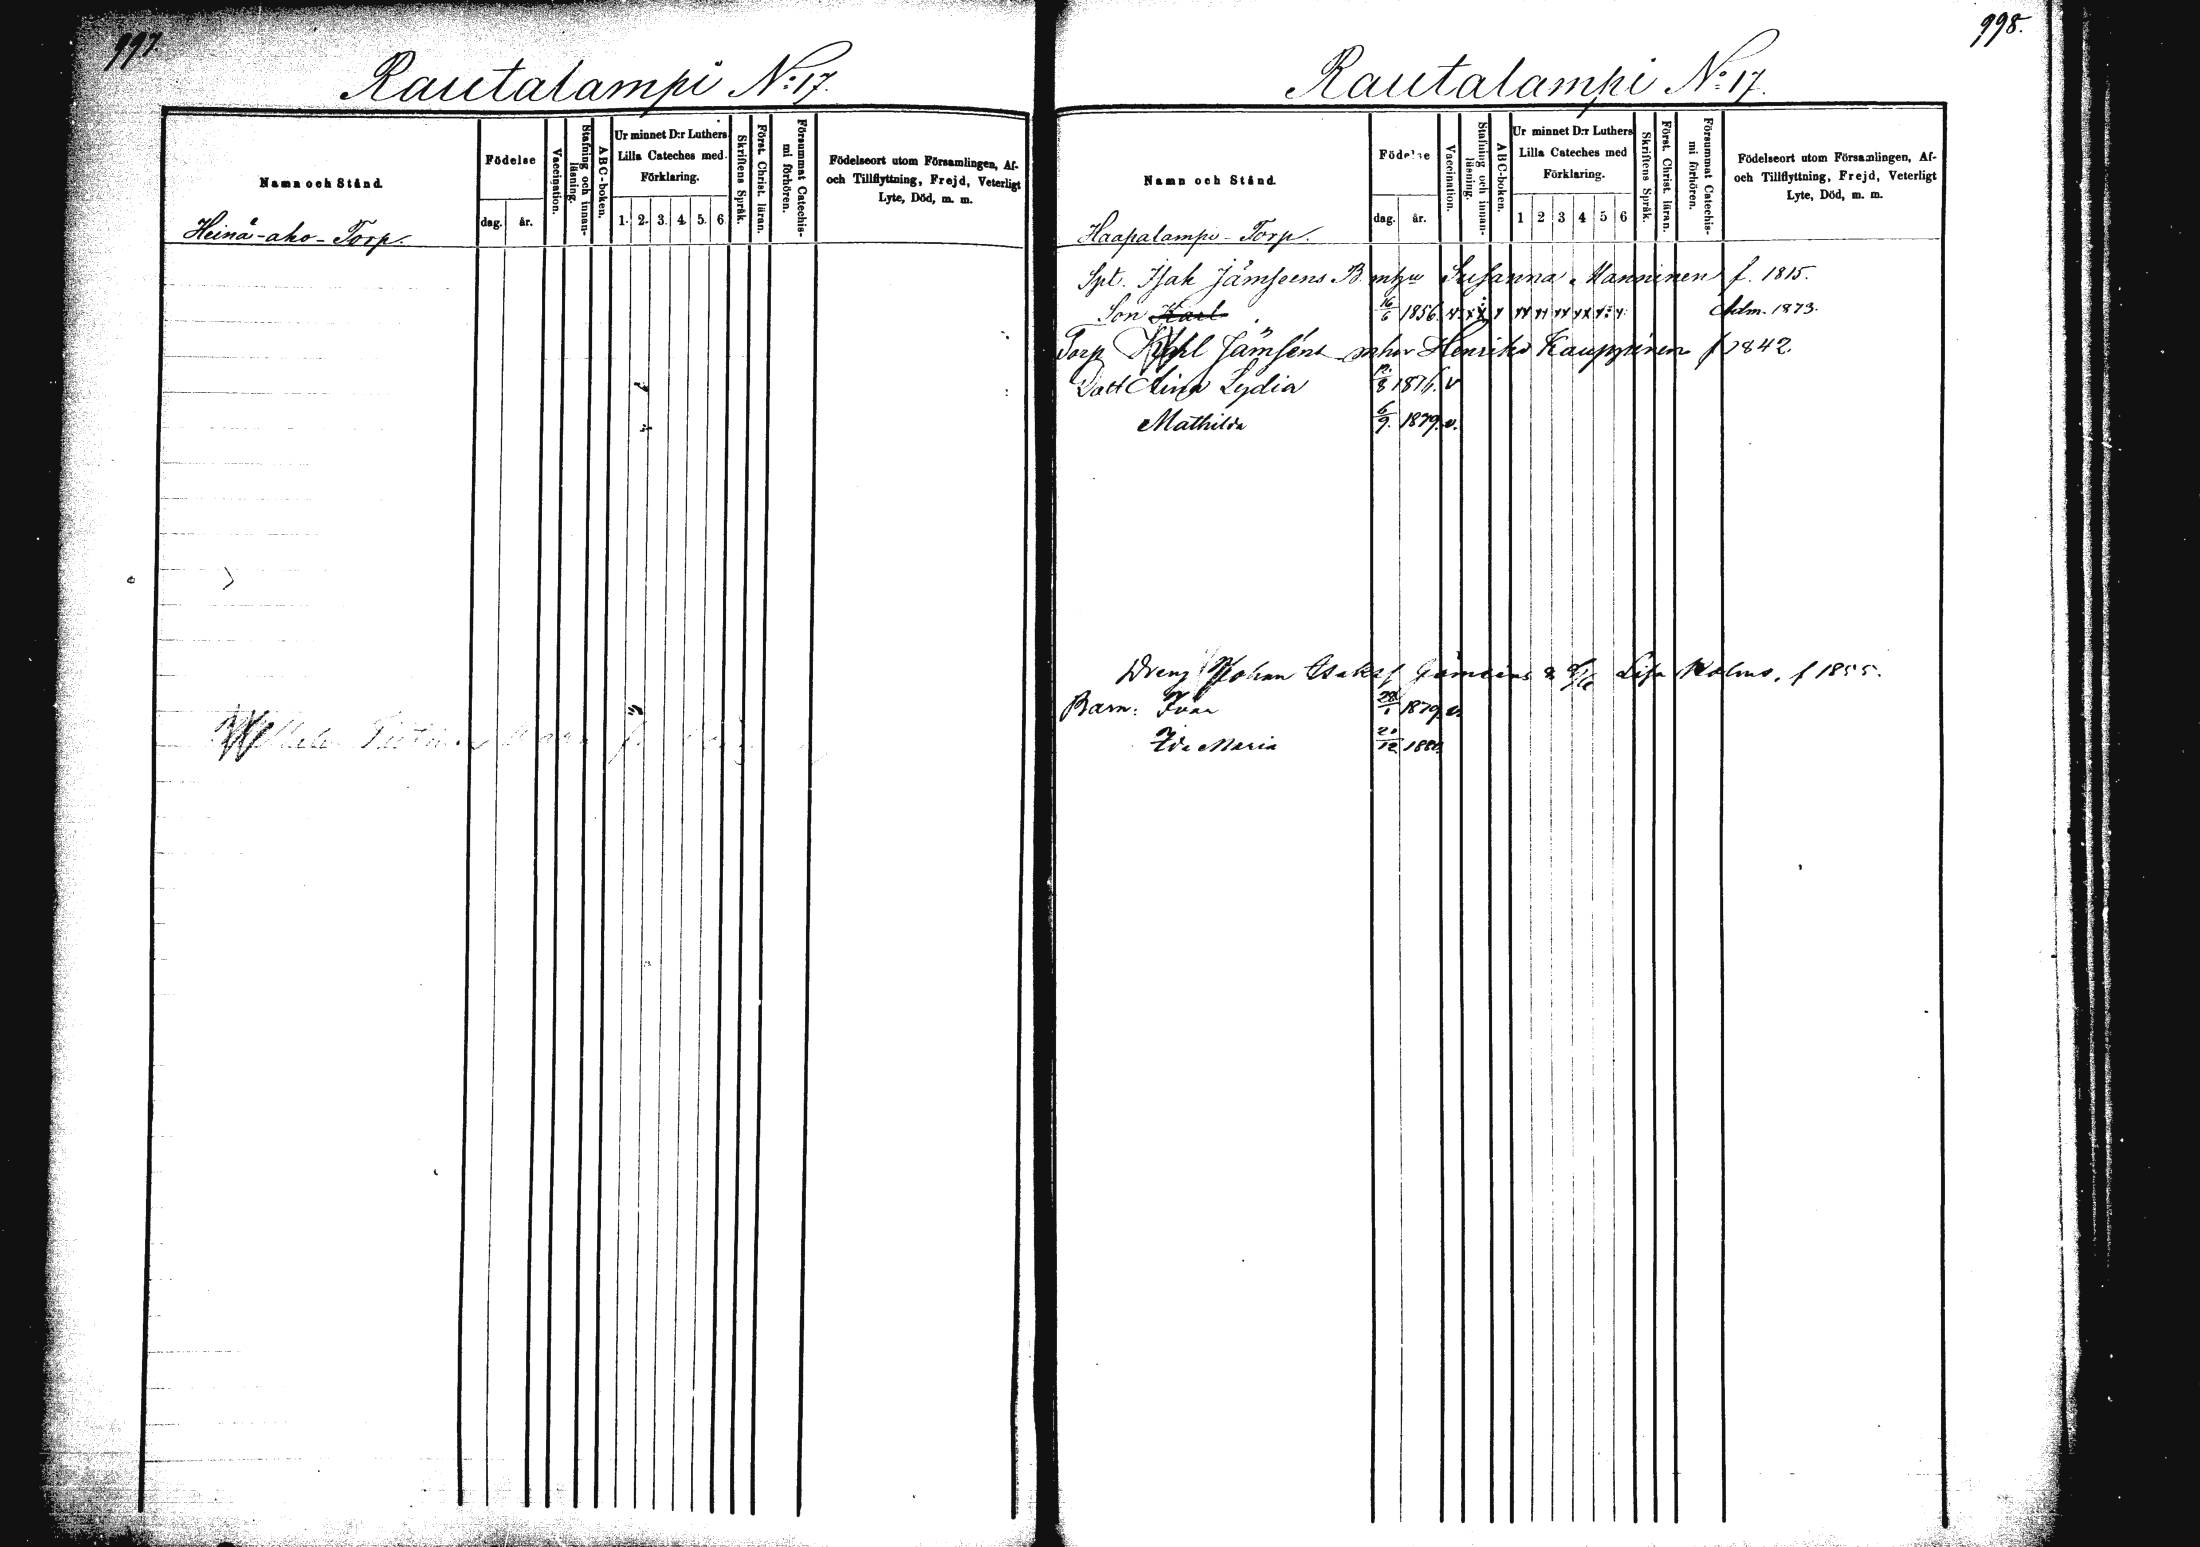 997.
Rautalampi N:o 17.
Namn och Stånd.
Födelse
dag. år.
Vaccination.
Stafning och innan-läsning.
ABC-boken.
Ur minnet D:r Luthers
Lilla Cateches med
Förklaring.
1. 2. 3. 4. 5. 6.
Skriftens Språk.
Först. Christ. läran.
Försummat Catechis-mi förhören.
Födelseort utom Församlingen, Af-
och Tillflyttning, Frejd, Veterligt
Lyte, Död, m. m.
Heinä-aho-Torp.
998.
Rautalampi N:o 17.
Namn och Stånd.
Födelse
dag. år.
Vaccination.
Stafning och innan-läsning.
ABC-boken.
Ur minnet D:r Luthers
Lilla Cateches med
Förklaring.
1 2 3 4 5 6
Skriftens Språk.
Först. Christ läran.
Försummat Catechis-mi förhören.
Födelseort utom Församlingen, Af-
och Tillflyttning, Frejd, Veterligt
Lyte, Död, m. m.
Haapalampi-Torp.
Spt. Isak Jämsens Susanna Manninen f. 1815.
Son Karl 16/6 1856. Adm. 1873.
Torp Karl Jämsens Henrika Kauppinen f 1842.
Dott Aina Lydia 1876. v
Mathilda 6/9. 1879. v.
Dreng Johan Isaks Lisa f 1855.
Barn: Ivar 28/1 1879. v.
Ida Maria 20/12 1880.